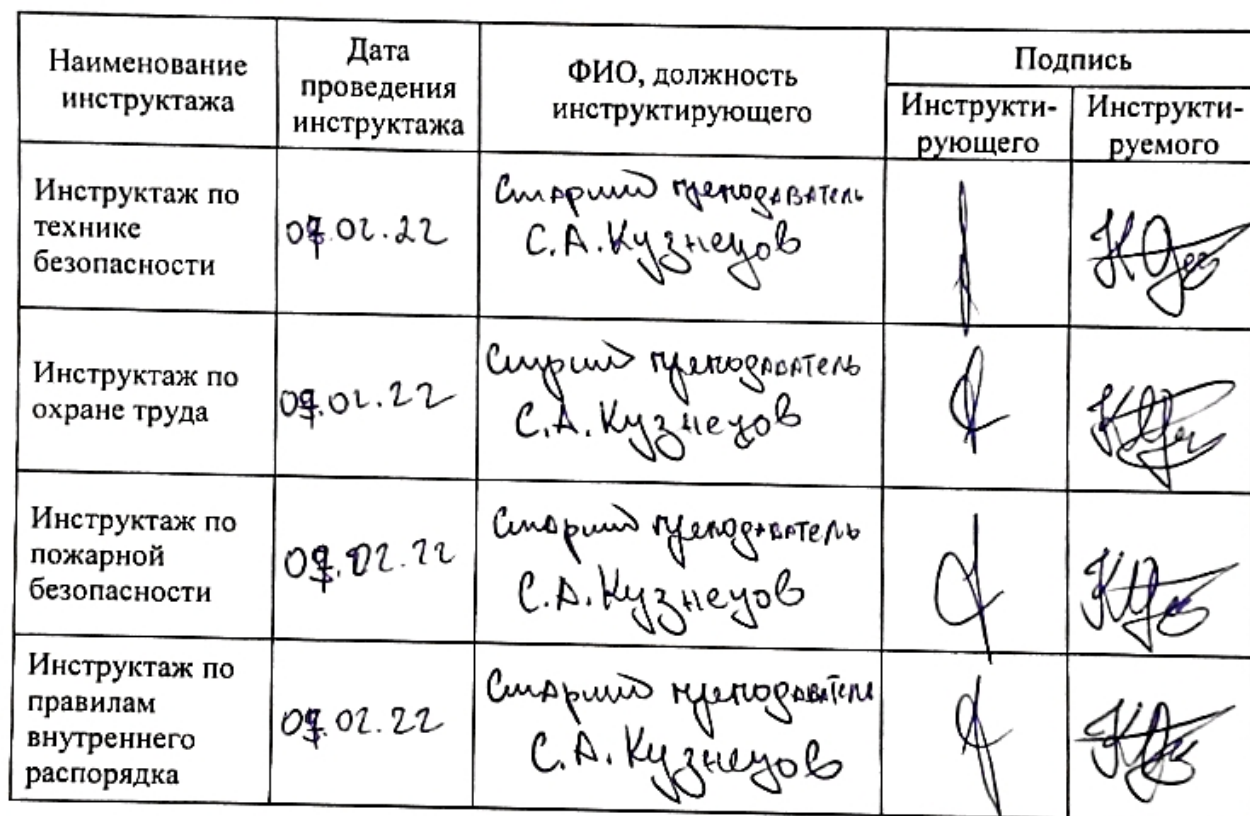 Наименование
инструктажа
Дата
проведения
инструктажа
ФИО, должность
инструктирующего
Подпись
Инструкти-
рующего
Инструкти-
руемого
Инструктаж по
технике
безопасности
07.02.22
Старший преподаватель
С.А.Кузнецов
Инструктаж по
охране труда
07.02.22
Старший преподаватель
С.А.Кузнецов
Инструктаж по
пожарной
безопасности
07.02.22
Старший преподаватель
С.А.Кузнецов
Инструктаж по
правилам
внутреннего
распорядка
07.02.22
Старший преподаватель
С.А.Кузнецов